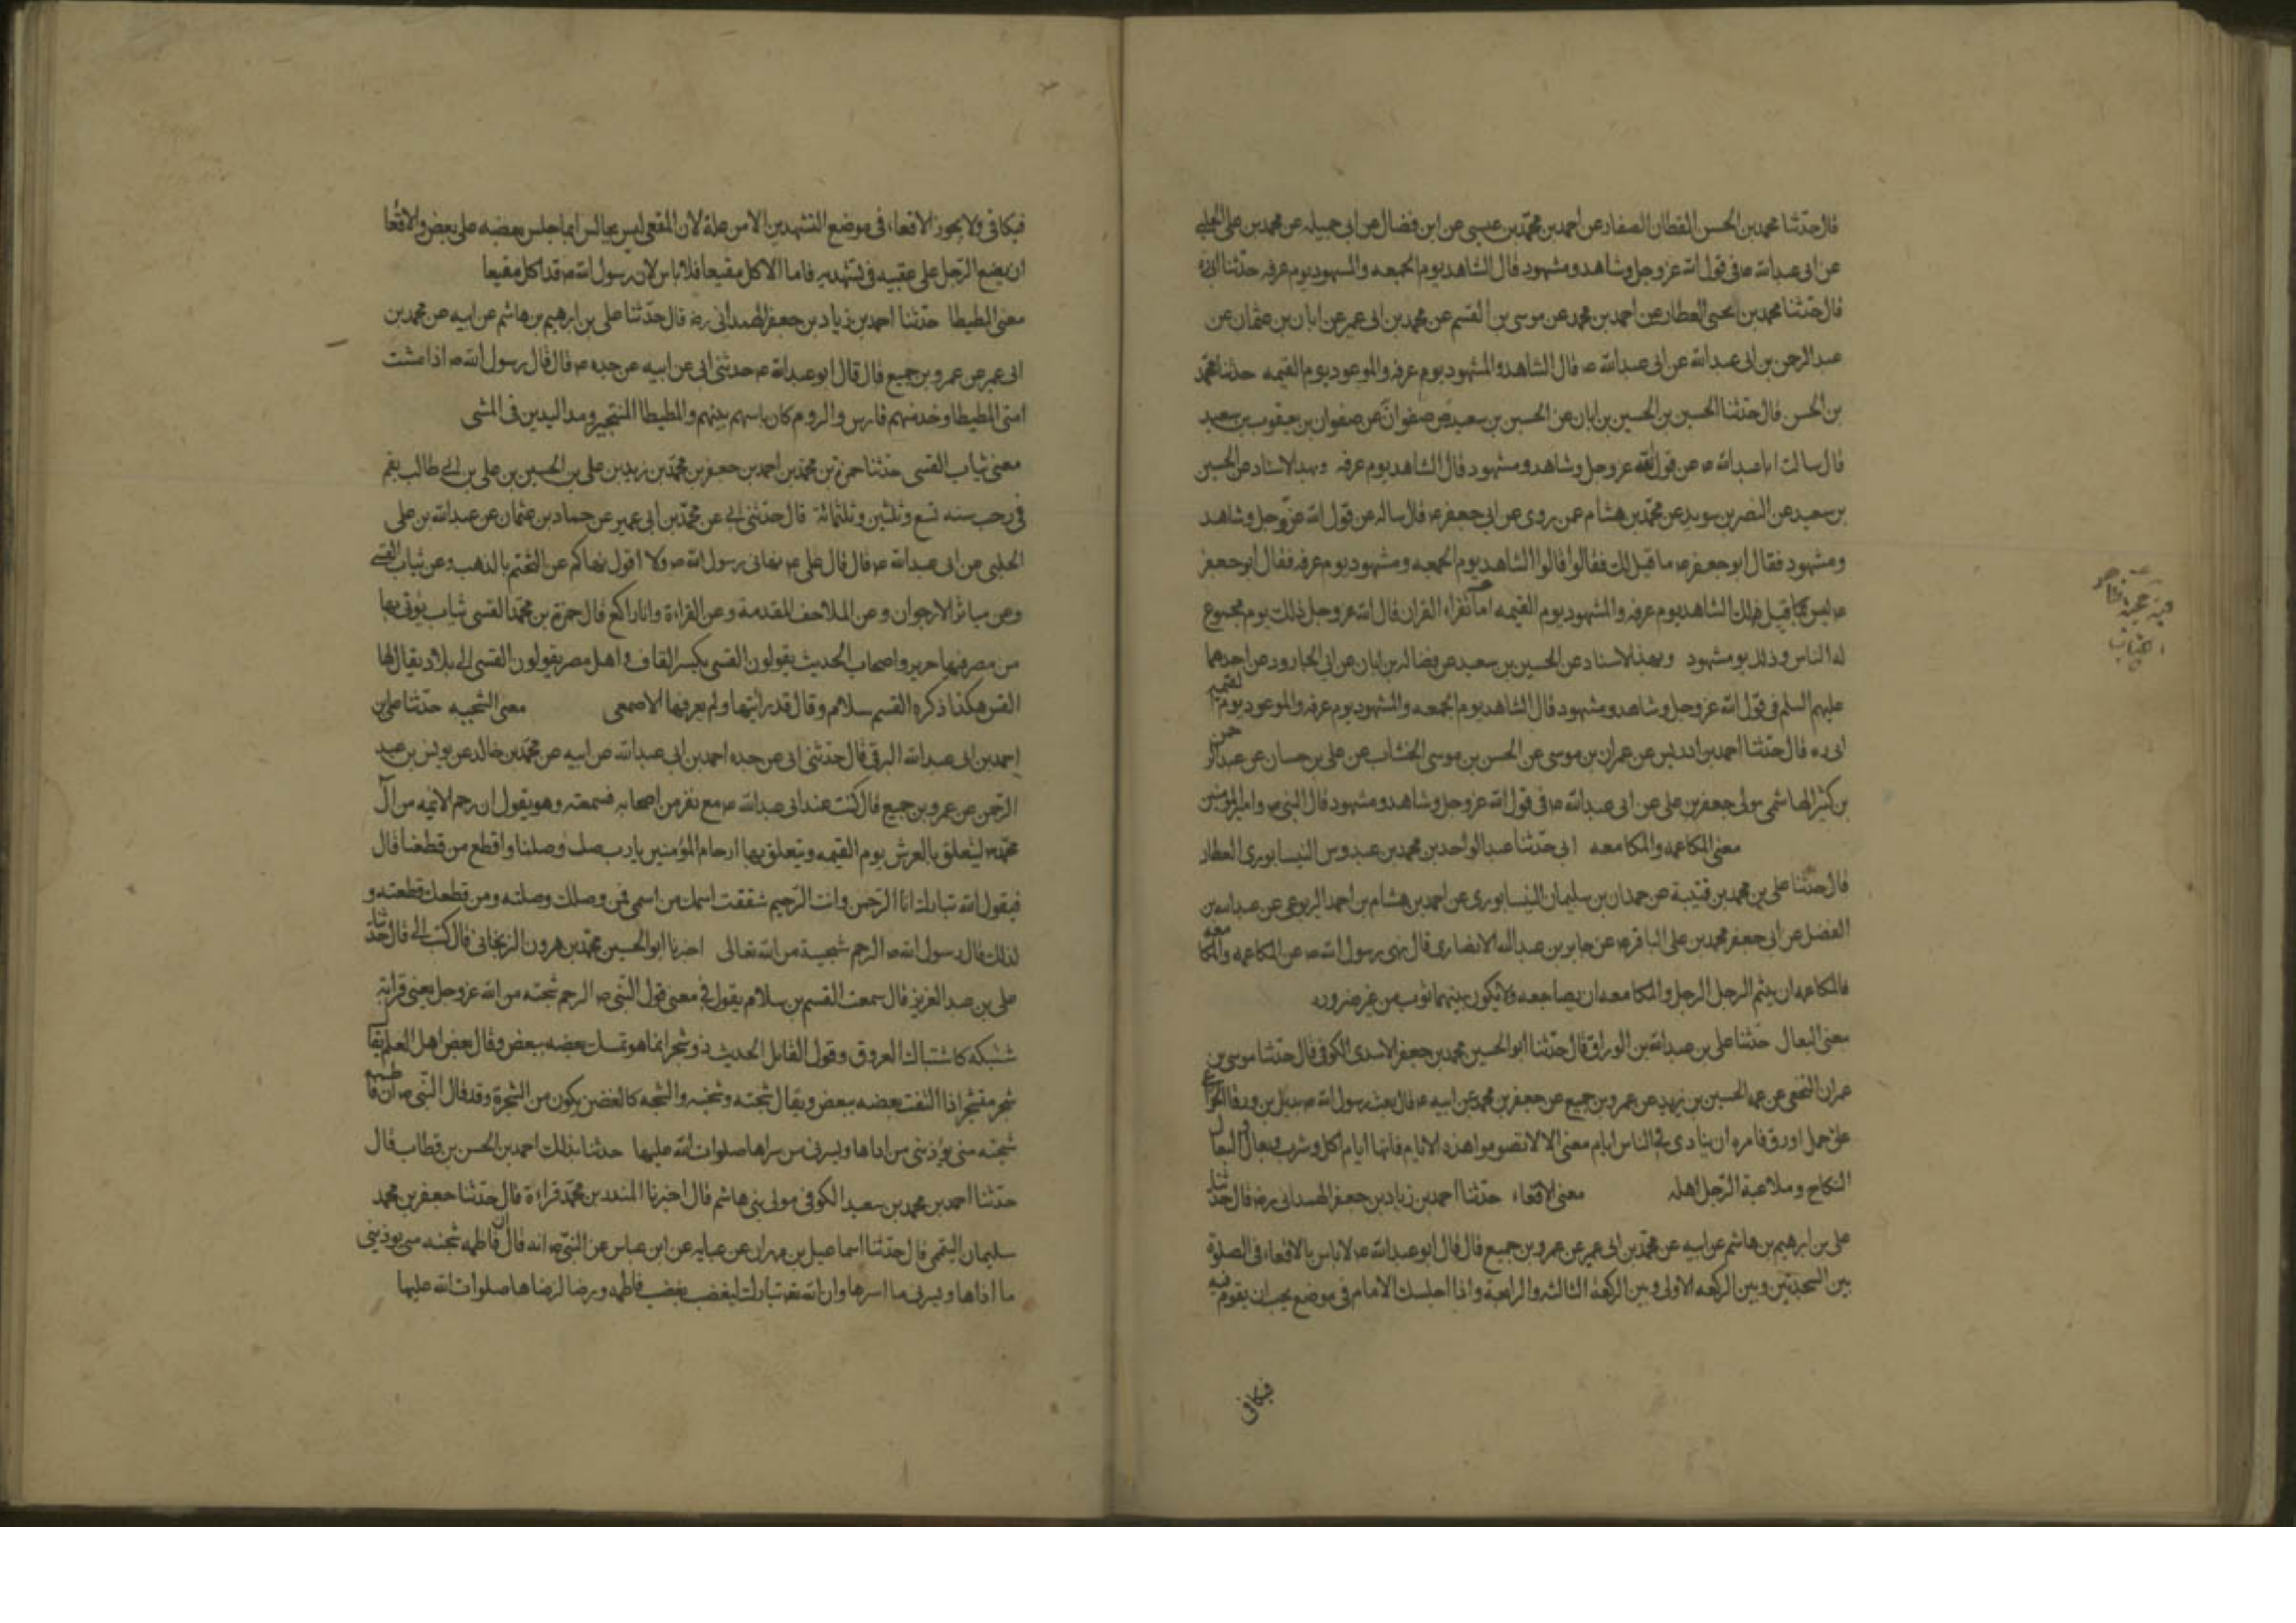 قال حدثنا محمد بن الحسن القطان الصفار عن احمد بن محمد بن عيسى عن ابن فضال عن ابى جميله عن محمد بن على الحلبى
عن ابى عبدالله ع فى قول الله عز وجل وشاهد ومشهود قال الشاهد يوم الجمعه والمشهود يوم عرفه حدثنا ابى ره
قال حدثنا محمد بن يحيى العطار عن احمد بن محمد عن موسى بن القسم عن محمد بن ابى عمير عن ابان بن عثمان عن
عبد الرحمن بن ابى عبدالله عن ابى عبدالله ع قال الشاهد والمشهود يوم عرفه والموعود يوم القيمه حدثنا محمد
بن الحسن قال حدثنا الحسين بن الحسين بن ابان عن الحسين بن سعيد عن صفوان عن صفوان بن يعقوب بن سعيد
قال سالت ابا عبدالله ع عن قول الله عز وجل وشاهد ومشهود قال الشاهد يوم عرفه وبهذا الاسناد عن الحسين
بن سعيد عن النضر بن سويد عن محمد بن هشام عمن روى عن ابى جعفر ع قال ساله عن قول الله عز وجل وشاهد
ومشهود فقال ابو جعفر ع ما قيل لك فقالوا قالوا الشاهد يوم الجمعه ومشهود يوم عرفه فقال ابو جعفر
ع ليس كما قيل لك الشاهد يوم عرفه والمشهود يوم القيمه اما تقراء القران قال الله عز وجل ذلك يوم مجموع
له الناس وذلك يوم مشهود وبهذا الاسناد عن الحسين بن سعيد عن فضاله بن ابان عن ابى الجارود عن احدهما
عليهم السلم فى قول الله عز وجل وشاهد ومشهود قال الشاهد يوم الجمعه والمشهود يوم عرفه والموعود يوم القيمه
ابى ره قال حدثنا احمد بن ادريس عن عمران بن موسى عن الحسن بن موسى الخشاب عن على بن حسان عن عبد الرحمن
بن كثير الهاشمى مولى جعفر بن على عن ابى عبدالله ع فى قول الله عز وجل وشاهد ومشهود قال النبى ص وامير المؤمنين
معنى المكاعمه والمكامعه ابى حدثنا عبد الواحد بن محمد بن عبدوس النيسابورى العطار
قال حدثنا على بن محمد بن قتيبة عن حمدان بن سليمان النيسابورى عن احمد بن هشام بن احمد اليربوعى عن عبدالله بن
الفضل عن ابى جعفر محمد بن على الباقر ع عن جابر بن عبدالله الانصارى قال نهى رسول الله ص عن المكاعمه والمكامعه
فالمكاعمه ان يلثم الرجل الرجل والمكامعه ان يضاجعه ولا يكون بينهما ثوب من غير ضروره
معنى البعال حدثنا على بن عبدالله بن الوراق قال حدثنا ابو الحسين محمد بن جعفر الاسدى الكوفى قال حدثنا موسى بن
عمران النخعى عن عمه الحسين بن يزيد عن عمرو بن جميع عن جعفر بن محمد عن ابيه ع قال بعث رسول الله ص بديل بن ورقاء الخزاعى
على جمل اورق فامره ان ينادى فى الناس ايام معنى الا لا تصوموا هذه الايام فانها ايام اكل وشرب وبعال والبعال
النكاح وملاعبة الرجل اهله معنى الاقعاء حدثنا احمد بن زياد بن جعفر الهمدانى رضه قال حدثنا
على بن ابرهيم بن هاشم عن ابيه عن محمد بن ابى عمير عن عمرو بن جميع قال قال ابو عبدالله ع لا باس بالاقعاء فى الصلوة
بين السجدتين وبين الركعه الاولى وبين الركعة الثالثه والرابعة واذا اجلسك الامام فى موضع يجب ان تقوم فيه
فيكافى
فيكافى ولا يجوز الاقعاء فى موضع التشهدين الا من علة لان المقعى ليس بجالس انما جلس بعضه على بعض والاقعا
ان يضع الرجل على عقبيه فى تشهديه فاما الاكل مقيعا فلا باس لان رسول الله ص قد اكل مقيعا
معنى المطيطا حدثنا احمد بن زياد بن جعفر الهمدانى رضه قال حدثنا على بن ابرهيم بن هاشم عن ابيه عن محمد بن
ابى عمير عن عمرو بن جميع قال قال ابو عبدالله ع حدثنى ابى عن ابيه عن جده ع قال قال رسول الله ص اذا مشت
امتى المطيطا وخدمتهم فارس والروم كان باسهم بينهم والمطيطا التبختر ومد اليدين فى المشى
معنى ثياب القسى حدثنا حمزة بن محمد بن احمد بن جعفر بن محمد بن زيد بن على بن الحسين بن على بن ابى طالب بقم
فى رجب سنه تسع وثلثين وثلثمائة قال حدثنى ابى عن محمد بن ابى عمير عن حماد بن عثمان عن عبدالله بن على
الحلبى عن ابى عبدالله ع قال قال على ع نهانى رسول الله ص ولا اقول نهاكم عن التختم بالذهب وعن ثياب القسى
وعن مياثر الارجوان وعن الملاحف المقدمة وعن القراءة وانا راكع قال حمزة بن محمد القسى ثياب يؤتى بها
من مصر فيها حرير واصحاب الحديث يقولون القسى بكسر القاف واهل مصر يقولون القسى الى بلاد يقال لها
القس هكذا ذكره القسم سلام وقال قد رايتها ولم يعرفها الاصمعى معنى الشجنه حدثنا على بن
احمد بن ابى عبدالله البرقى قال حدثنى ابى عن جده احمد بن ابى عبدالله عن ابيه عن محمد بن خالد عن يونس بن عبد
الرحمن عن عمرو بن جميع قال كنت عند ابى عبدالله ع مع نفر من اصحابه فسمعته وهو يقول ان رحم الائمه من آل
محمد ص ليتعلق بالعرش يوم القيمه ويتعلق بها ارحام المؤمنين يا رب صل من وصلنا واقطع من قطعنا قال
فيقول الله تبارك انا الرحمن وانت الرحيم شققت اسمك من اسمى فمن وصلك وصلته ومن قطعك قطعته و
لذلك قال رسول الله ص الرحم شجنة من الله تعالى اخبرنا ابو الحسين محمد بن هرون الزنجانى قال كتب الى قال حدثنا
على بن عبد العزيز قال سمعت القسم بن سلام يقول فى معنى قول النبى ص الرحم شجنه من الله عز وجل يعنى قرابة
شبكه كاشتباك العروق وقول القايل الحديث ذو شجر انما هو تمسك بعضه ببعض وقال بعض اهل العلم يقال
شجر مشجر اذا التفت بعضه ببعض ويقال شجنه وشجنه والشجنه كالغصن يكون من الشجرة وقد قال النبى ص ان فاطمه
شجنه منى يؤذينى من اذاها ويسرنى من سرها صلوات الله عليها حدثنا بذلك احمد بن الحسن بن قطاب قال
حدثنا احمد بن محمد بن سعيد الكوفى مولى بنى هاشم قال اخبرنا المنذر بن محمد قراءة قال حدثنا جعفر بن محمد
سليمان اليقمى قال حدثنا اسماعيل بن مهران عن عبايه عن ابن عباس عن النبى ص انه قال ان فاطمه شجنه منى يوذينى
ما اذاها ويسرنى ما اسرها وان الله تبارك ليغضب بغضب فاطمه ويرضا لرضاها صلوات الله عليها